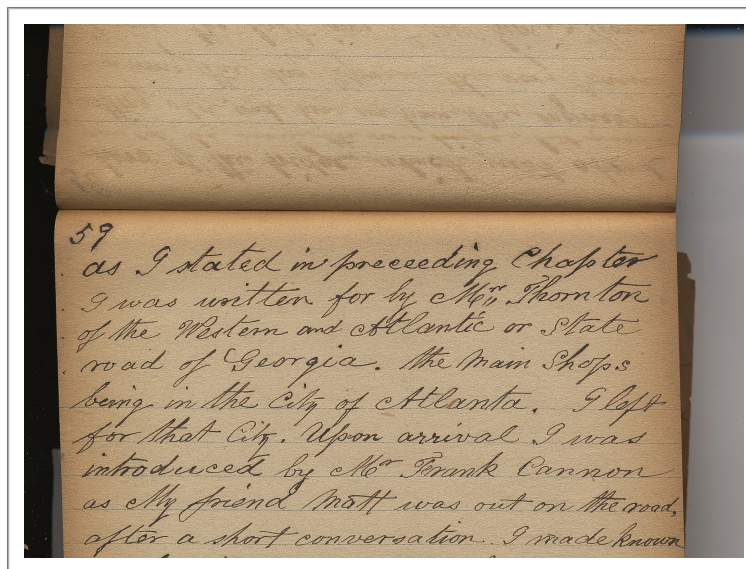 59
as I stated in preceeding Chapter
I was written for by Mr,, Thornton
of the Western and Atlantic or State
road of Georgia. the Main Shops
being in the City of Atlanta. I left
for that City. Upon arrival I was
introduced by Mr Frank Cannon
as My friend Matt was out on the road,
after a short conversation. I made known